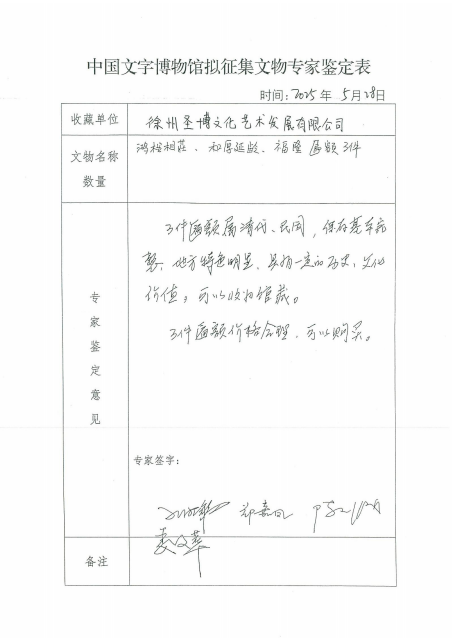 中国文字博物馆拟征集文物专家鉴定表
时间：2025年 5月28日
收藏单位
徐州圣博文化艺术发展有限公司
文物名称
数量
鸿裕相庄、和厚延龄、福隆匾额3件
专家鉴定意见
3件匾额属清代、民国，保存基本完
整，地方特色明显，具有一定的历史、文化
价值，可以收归馆藏。
3件匾额价格合理，可以购买。
专家签字：
备注